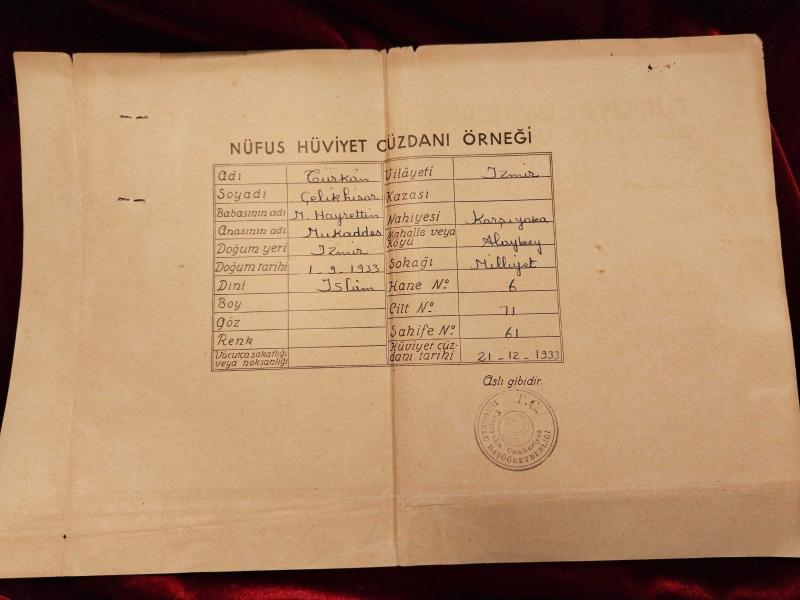 NÜFUS HÜVİYET CÜZDANI ÖRNEĞİ
Adı Türkân
Soyadı Çelikhisar
Babasının adı M. Hayrettin
Anasının adı Mukaddes
Doğum yeri İzmir
Doğum tarihi 1-9-1933
Dini İslâm
Boy
Göz
Renk
Vücutça sakatlığı
veya noksanlığı
Vilâyeti İzmir
Kazası
Nahiyesi Karşıyaka
Mahalle veya
Köyü Alaybey
Sokağı Milliyet
Hane No. 6
Cilt No. 71
Sahife No. 61
Hüviyet cüz-
danı tarihi 21-12-1933
Aslı gibidir.
T.C.
Cumhuriyet
BAŞÖĞRETMENLİĞİ